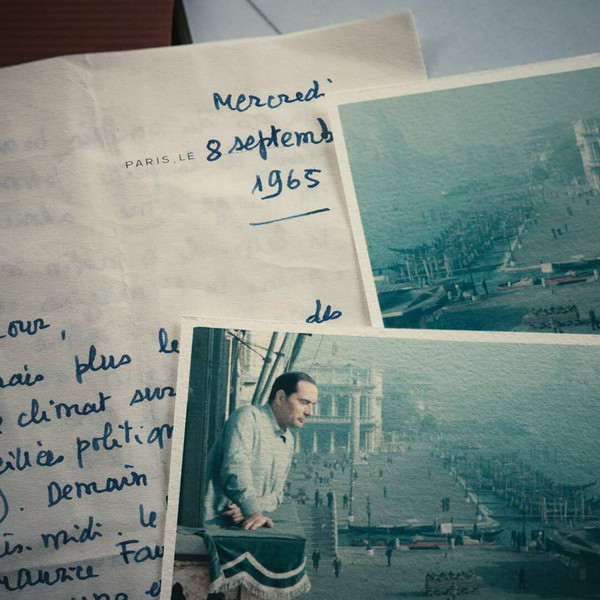 Mercredi
PARIS, LE 8 septemb
1965
our,
des
ais plus le
climat sur
illées politiqu
). Demain
ès-midi. le
Maurice Fau